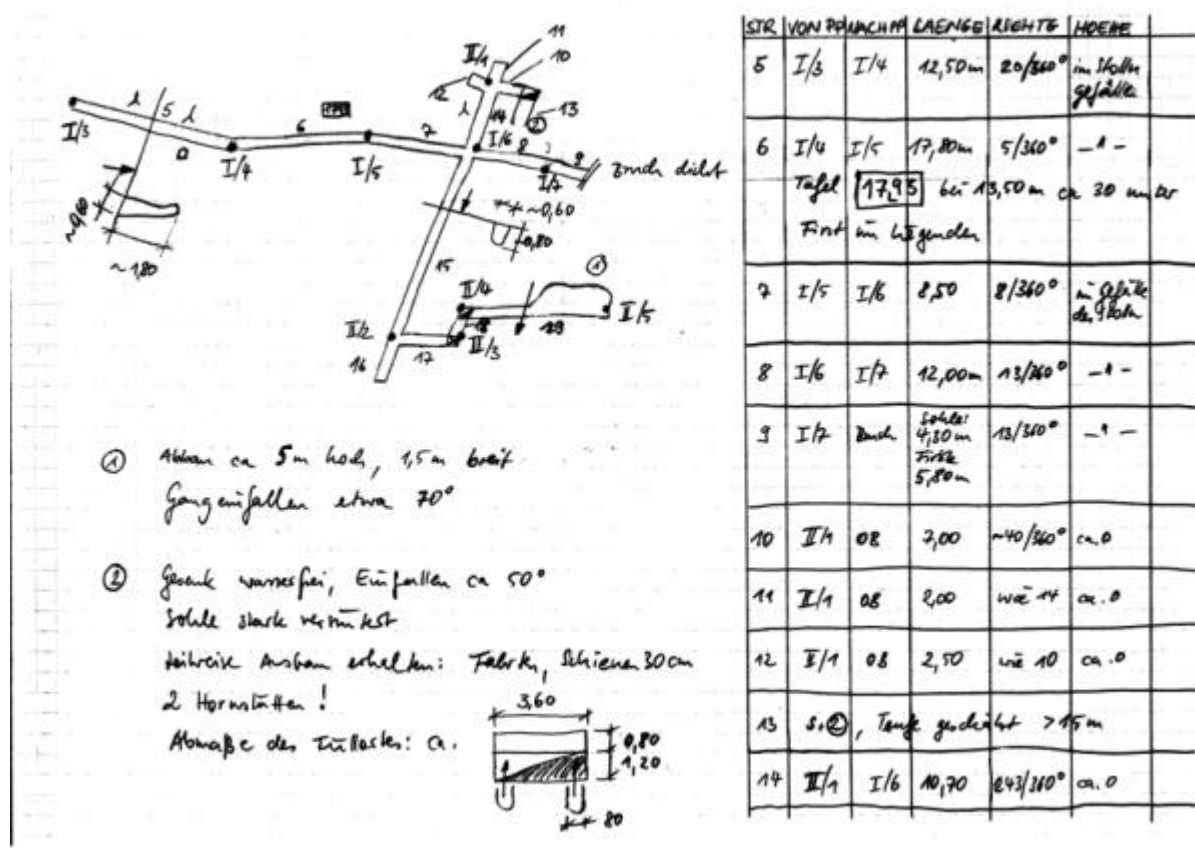 11
II/1
10
12
13
l
14
②
l 5 l
1793
6
7
I/6
8
9
I/3
I/4
I/5
I/7
Bruch dicht
~0,60
~0,60
0,80
~1,80
15
①
II/4
I/5
18
19
II/2
II/3
16
17
① Abbau ca 5m hoch, 1,5m breit
Gangeinfallen etwa 70°
② Gesenk wasserfrei, Einfallen ca 50°
Sohle stark verwüstet
teilweise Ausbau erhalten: Fahrten, Schienen 30cm
2 Hornstätten !
Abmaße des Füllortes: ca.
3,60
0,80
1,20
80
STR VON PP NACH PP LAENGE RICHTG HOEHE
5 I/3 I/4 12,50m 20/360° im Stolln
gefälle
6 I/4 I/5 17,80m 5/360° –"–
Tafel 17,93 bei 13,50m ca 30 unter
First im Liegenden
7 I/5 I/6 8,50 8/360° im Gefälle
des Stolln
8 I/6 I/7 12,00m 13/360° –"–
9 I/7 Bruch Sohle: 13/360° –"–
4,30m
Firste
5,80m
10 II/1 OB 2,00 ~40/360° ca.0
11 II/1 OB 2,00 wie 14 ca.0
12 II/1 OB 2,50 wie 10 ca.0
13 s.②, Teufe geschätzt >15m
14 II/1 I/6 10,70 243/360° ca.0